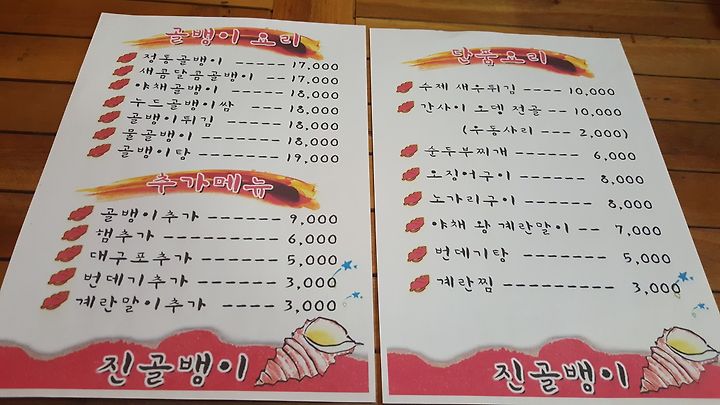 골뱅이 요리
정통골뱅이 ----- 17,000
새콤달콤골뱅이 -- 17,000
야채골뱅이 ----- 18,000
누드골뱅이쌈 --- 18,000
골뱅이튀김 ----- 18,000
물골뱅이 ------ 18,000
골뱅이탕 ------- 19,000
추가메뉴
골뱅이추가 ------- 9,000
햄추가 ---------- 6,000
대구포추가 ------- 5,000
번데기추가 ------ 3,000
계란말이추가 ---- 3,000
진골뱅이
단품요리
수제 새우튀김 ---- 10,000
간사이 오뎅 전골 -- 10,000
(우동사리 --- 2,000)
순두부찌개 ------ 6,000
오징어구이 ------ 8,000
노가리구이 ------ 8,000
야채 왕 계란말이 -- 7,000
번데기탕 ------- 5,000
계란찜 --------- 3,000
진골뱅이